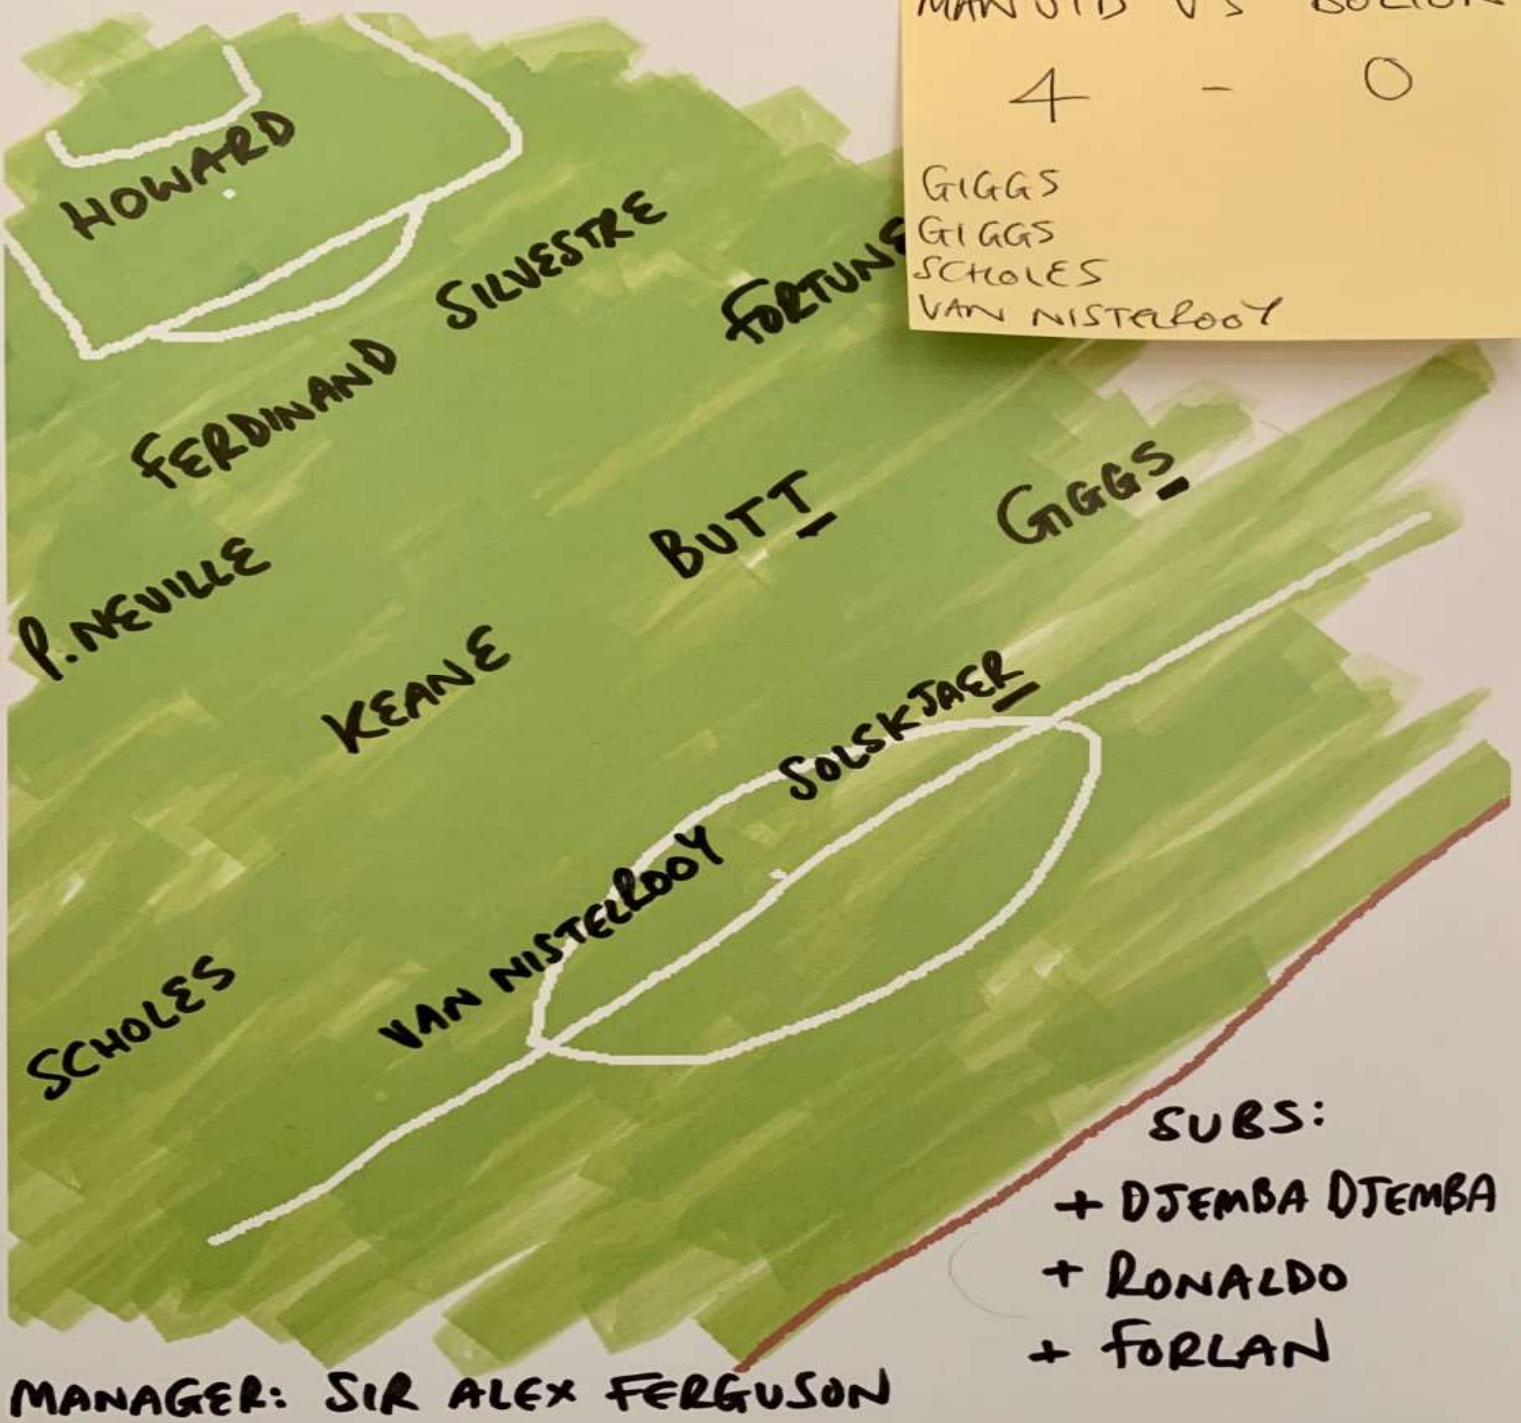 MAN UTD VS BOLTON
4 - 0
GIGGS
GIGGS
SCHOLES
VAN NISTELROOY
HOWARD
SILVESTRE
FORTUNE
FERDINAND
P. NEVILLE
BUTT
GIGGS
KEANE
SOLSKJAER
VAN NISTELROOY
SCHOLES
SUBS:
+ DJEMBA DJEMBA
+ RONALDO
+ FORLAN
MANAGER: SIR ALEX FERGUSON